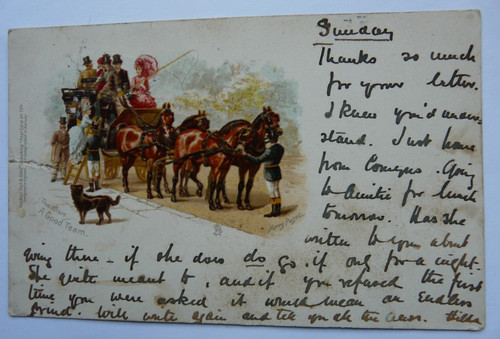 Sunday
Thanks so much
for your letter.
I knew you'd under
stand. Just home
from Comeyns. Going
to Auntie for lunch
tomorrow. Has she
written to you about
going there - if she does do go, if only for a night.
She quite meant to, and if you refused the first
time you were asked it would mean an Endless
grind. Will write again and tell you all the news. Hilda
The Start
A Good Team.